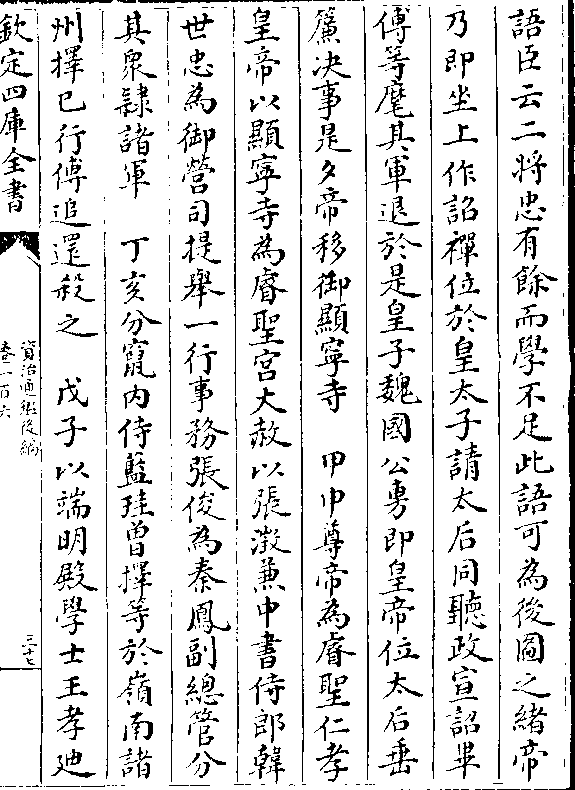 語臣云二將忠有餘而學不足此語可為後圖之緒帝
乃即坐上作詔禪位於皇太子請太后同聽政宣詔畢
傅等麾其軍退於是皇子魏國公旉即皇帝位太后垂
簾决事是夕帝移御顯寧寺　甲申尊帝為睿聖仁孝
皇帝以顯寧寺為睿聖宮大赦以張澂兼中書侍郎韓
世忠為御營司提舉一行事務張俊為秦鳳副總管分
其衆隸諸軍　丁亥分竄内侍藍珪曾擇等於嶺南諸
州擇已行傅追還殺之　戊子以端明殿學士王孝迪
欽定四庫全書
資治通鑑後編
卷一百六
三十七